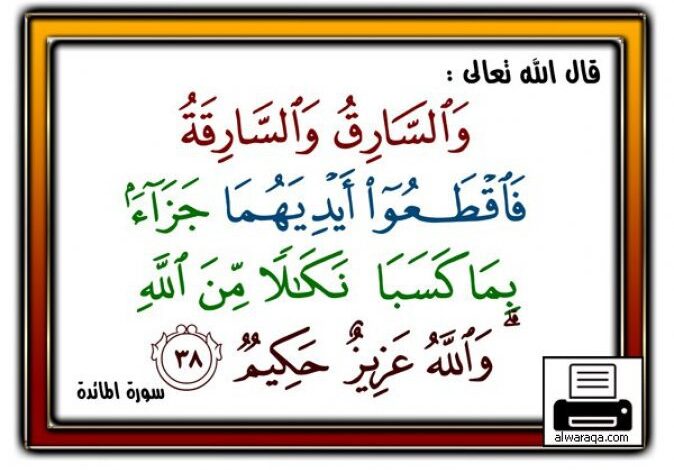 قال الله تعالى :
وَٱلسَّارِقُ وَٱلسَّارِقَةُ
فَٱقْطَعُوٓا۟ أَيْدِيَهُمَا جَزَآءَۢ
بِمَا كَسَبَا نَكَٰلًا مِّنَ ٱللَّهِ ۗ
وَٱللَّهُ عَزِيزٌ حَكِيمٌ ٣٨
سورة المائدة
alwaraqa.com